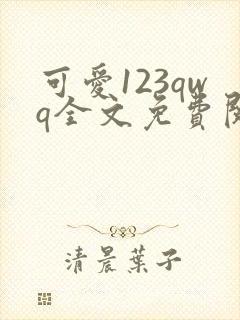 可愛123qw
q全文免費閱
清晨葉子